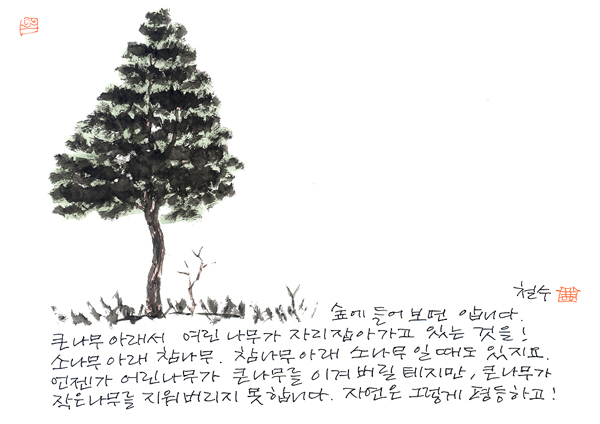 철수
숲에 들어 보면 압니다.
큰나무 아래서 여린 나무가 자리잡아가고 있는 것을!
소나무 아래 참나무. 참나무 아래 소나무 일 때도 있지요.
언젠가 어린나무가 큰나무를 이겨 버릴 테지만, 큰나무가
작은나무를 지워버리지 못합니다. 자연은 그렇게 평등하고!